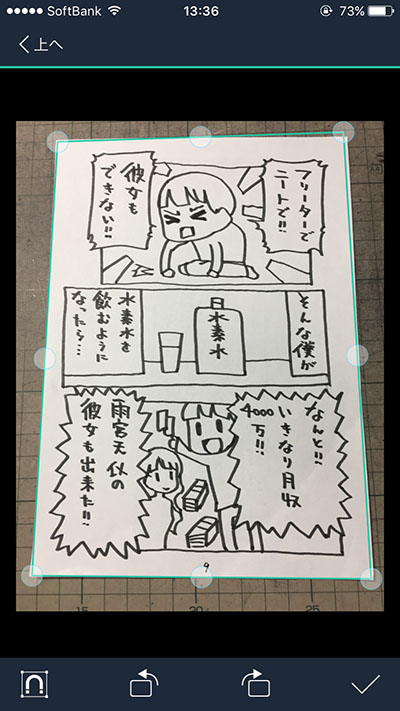 SoftBank
13:36
73%
上へ
フリーターで
ニートで!!
彼女も
できない!!
そんな僕が
日水素水
水素水を
飲むように
なったら…
なんと!!
いきなり月収
4000
万!!
雨宮天似の
彼女も出来た!!
9
15
20
25